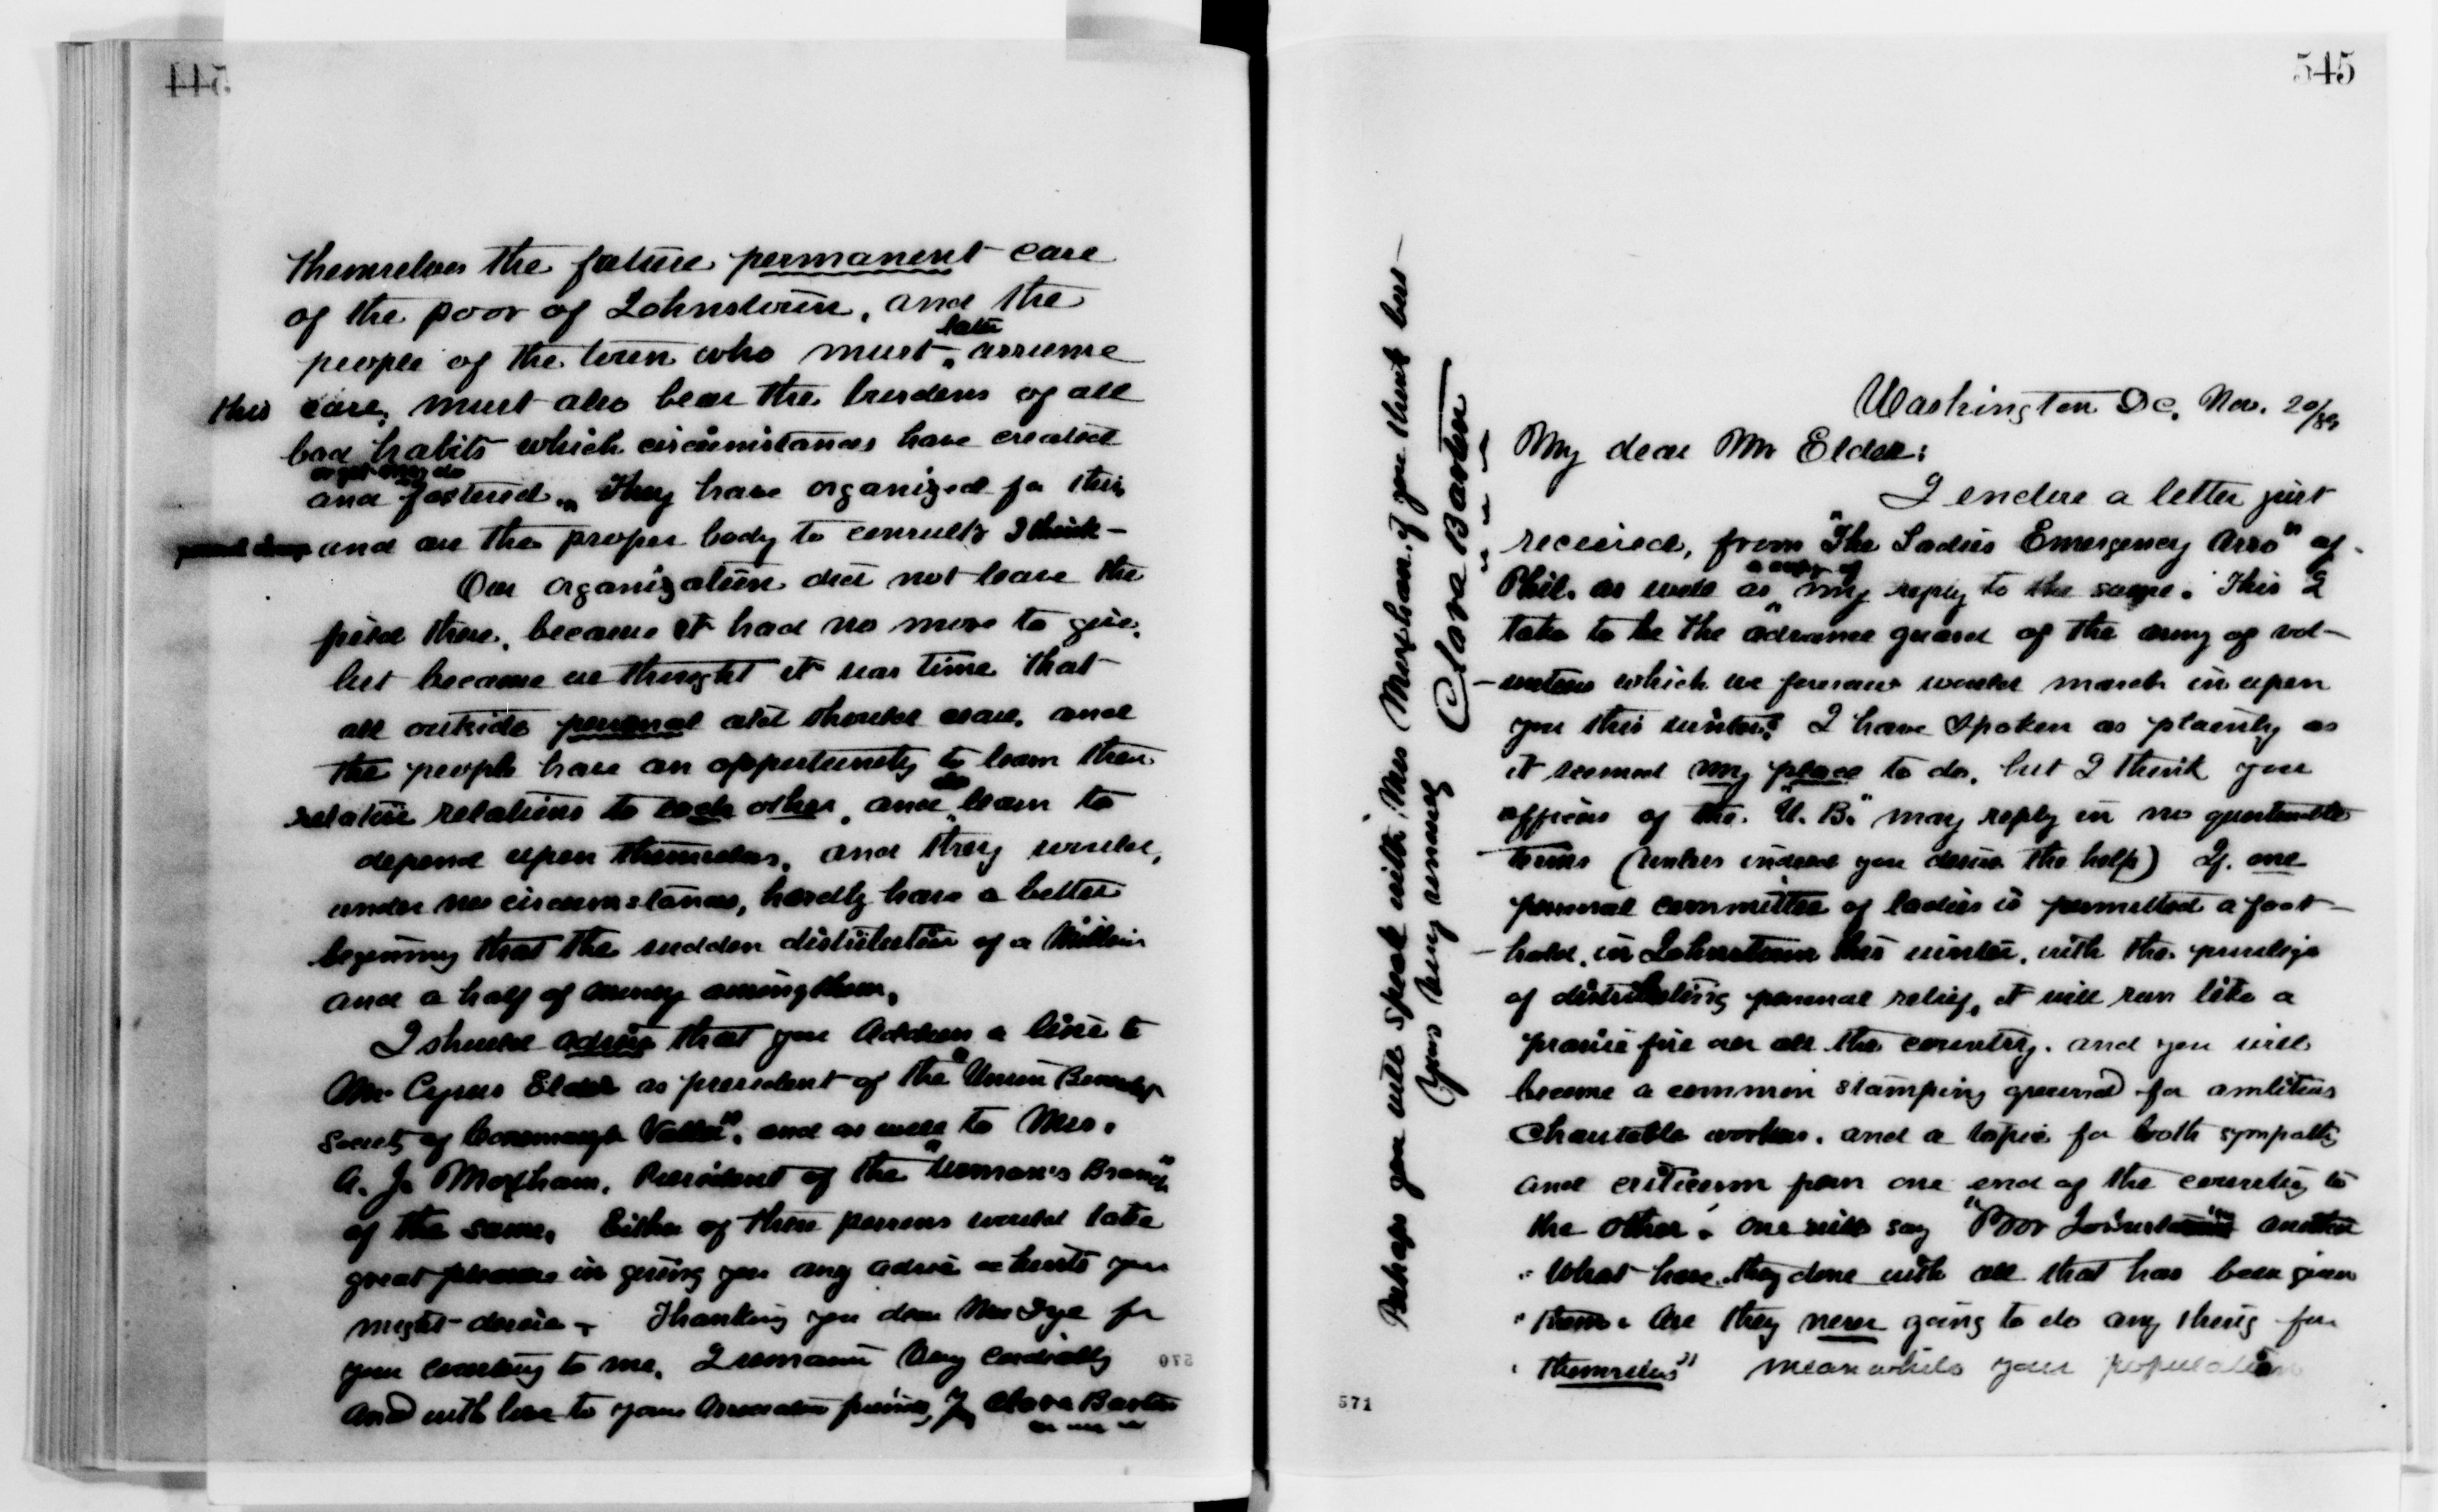 544
themselves the future permanent care
of the poor of Johnstown, and the
later
people of the town who must assume
this care, must also bear the burdens of all
bad habits which circumstances have created
and fostered. They have organized for this
and are the proper body to consult I think -
Our organization did not leave the
field there, because it had no more to give,
but because we thought it was time that
all outside personal aid should cease, and
the people have an opportunity to learn their
relative relations to each other, and to learn to
depend upon themselves, and they would,
under no circumstances, hardly have a better
beginning than the sudden distribution of a Million
and a half of money among them.
I should advise that you address a line to
Mr Cyrus Elder as president of the "Union Benevolent
Society of Conemaugh Valley", and as well to Mrs.
A. J. Moxham, President of the "Woman's Branch"
of the same. Either of these persons would take
great pleasure in giving you any advice or hints you
might desire - Thanking you dear Mrs Frye for
your courtesy to me, I remain Very Cordially
570
and with love to your Associate friends, Clara Barton
545
Washington DC. Nov. 20/89
My dear Mr Elder:
I enclose a letter just
received, from "The Ladies Emergency Asso" of
a copy of
Phil. as well as my reply to the same. This I
take to be the advance guard of the army of vol-
-unteers which we foresaw would march in upon
you this winter. I have spoken as plainly as
it seemed my place to do, but I think you
officers of the "U. B." may reply in no questionable
terms (unless indeed you desire the help) If one
personal committee of ladies is permitted a foot-
-hold, in Johnstown this winter, with the privilege
of distributing personal relief, it will run like a
prairie fire over all the country. and you will
become a common stamping ground for ambitious
Charitable workers. and a topic for both sympathy
and criticism from one end of the country to
the other. one will say "Poor Johnstown" another
"What have they done with all that has been given
"them. Are they never going to do any thing for
"themselves" meanwhile your population
571
Perhaps you will speak with Mrs Moxham if you think best -
Yours very sincerely
Clara Barton